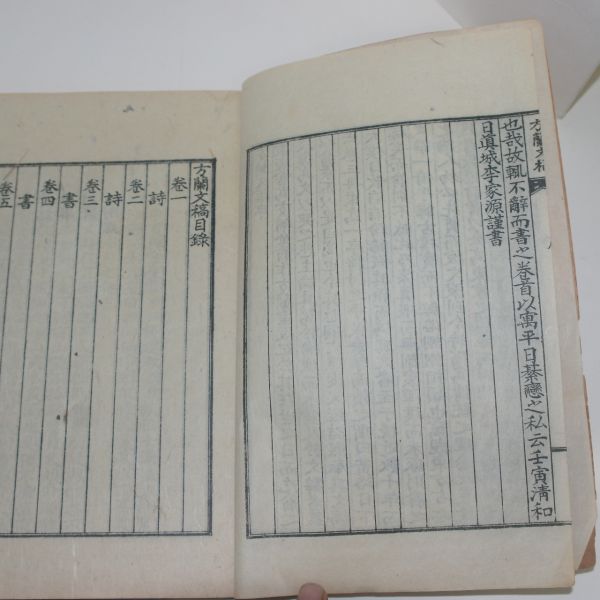 方蘭文稿
也哉故輒不辭而書之卷首以寓平日綦戀之私云壬寅清和
日眞城李家源謹書
方蘭文稿目錄
卷一
詩
卷二
詩
卷三
書
卷四
書
卷五